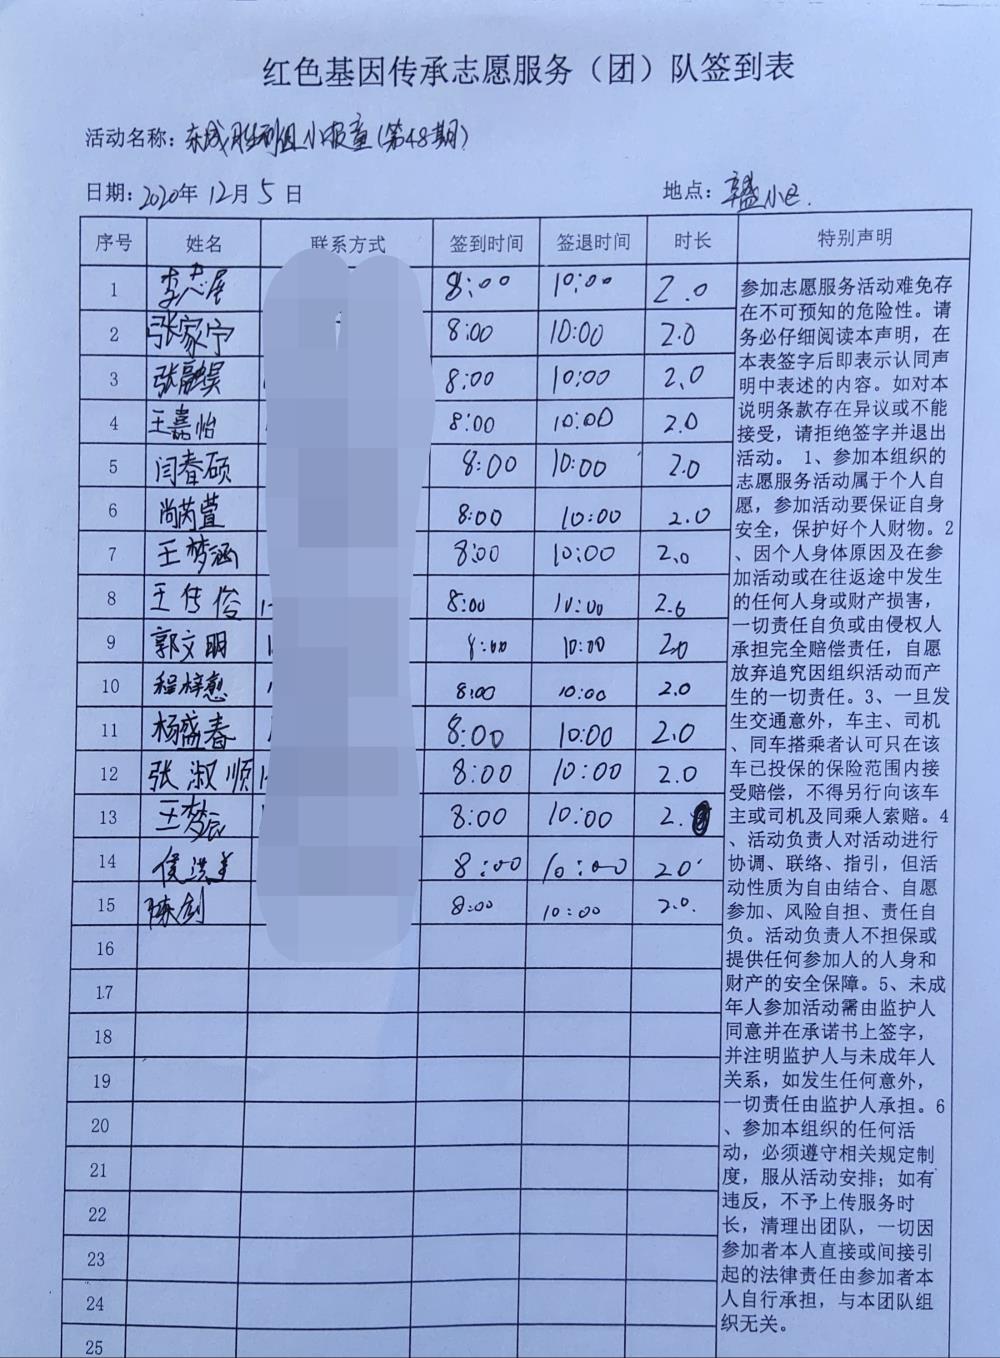 红色基因传承志愿服务（团）队签到表
活动名称：东城胜利组小报童(第48期)
日期：2020年12月5日 地点：小区.
序号 姓名 联系方式 签到时间 签退时间 时长 特别声明
1 李志展 8:00 10:00 2.0
2 张家宁 8:00 10:00 2.0
3 张融昊 8:00 10:00 2.0
4 王嘉怡 8:00 10:00 2.0
5 闫春硕 8:00 10:00 2.0
6 尚芮萱 8:00 10:00 2.0
7 王梦涵 8:00 10:00 2.0
8 王传俊 8:00 10:00 2.0
9 郭文明 8:00 10:00 2.0
10 程梓慧 8:00 10:00 2.0
11 杨盛春 8:00 10:00 2.0
12 张淑顺 8:00 10:00 2.0
13 王梦辰 8:00 10:00 2.
14 侯洪美 8:00 10:00 2.0
15 陈剑 8:00 10:00 2.0.
16
17
18
19
20
21
22
23
24
25
参加志愿服务活动难免存
在不可预知的危险性。请
务必仔细阅读本声明，在
本表签字后即表示认同声
明中表述的内容。如对本
说明条款存在异议或不能
接受，请拒绝签字并退出
活动。 1、参加本组织的
志愿服务活动属于个人自
愿，参加活动要保证自身
安全，保护好个人财物。2
、因个人身体原因及在参
加活动或在往返途中发生
的任何人身或财产损害，
一切责任自负或由侵权人
承担完全赔偿责任，自愿
放弃追究因组织活动而产
生的一切责任。3、一旦发
生交通意外，车主、司机
、同车搭乘者认可只在该
车已投保的保险范围内接
受赔偿，不得另行向该车
主或司机及同乘人索赔。4
、活动负责人对活动进行
协调、联络、指引，但活
动性质为自由结合、自愿
参加、风险自担、责任自
负。活动负责人不担保或
提供任何参加人的人身和
财产的安全保障。5、未成
年人参加活动需由监护人
同意并在承诺书上签字，
并注明监护人与未成年人
关系，如发生任何意外，
一切责任由监护人承担。6
、参加本组织的任何活
动，必须遵守相关规定制
度，服从活动安排；如有
违反，不予上传服务时
长，清理出团队，一切因
参加者本人直接或间接引
起的法律责任由参加者本
人自行承担，与本团队组
织无关。